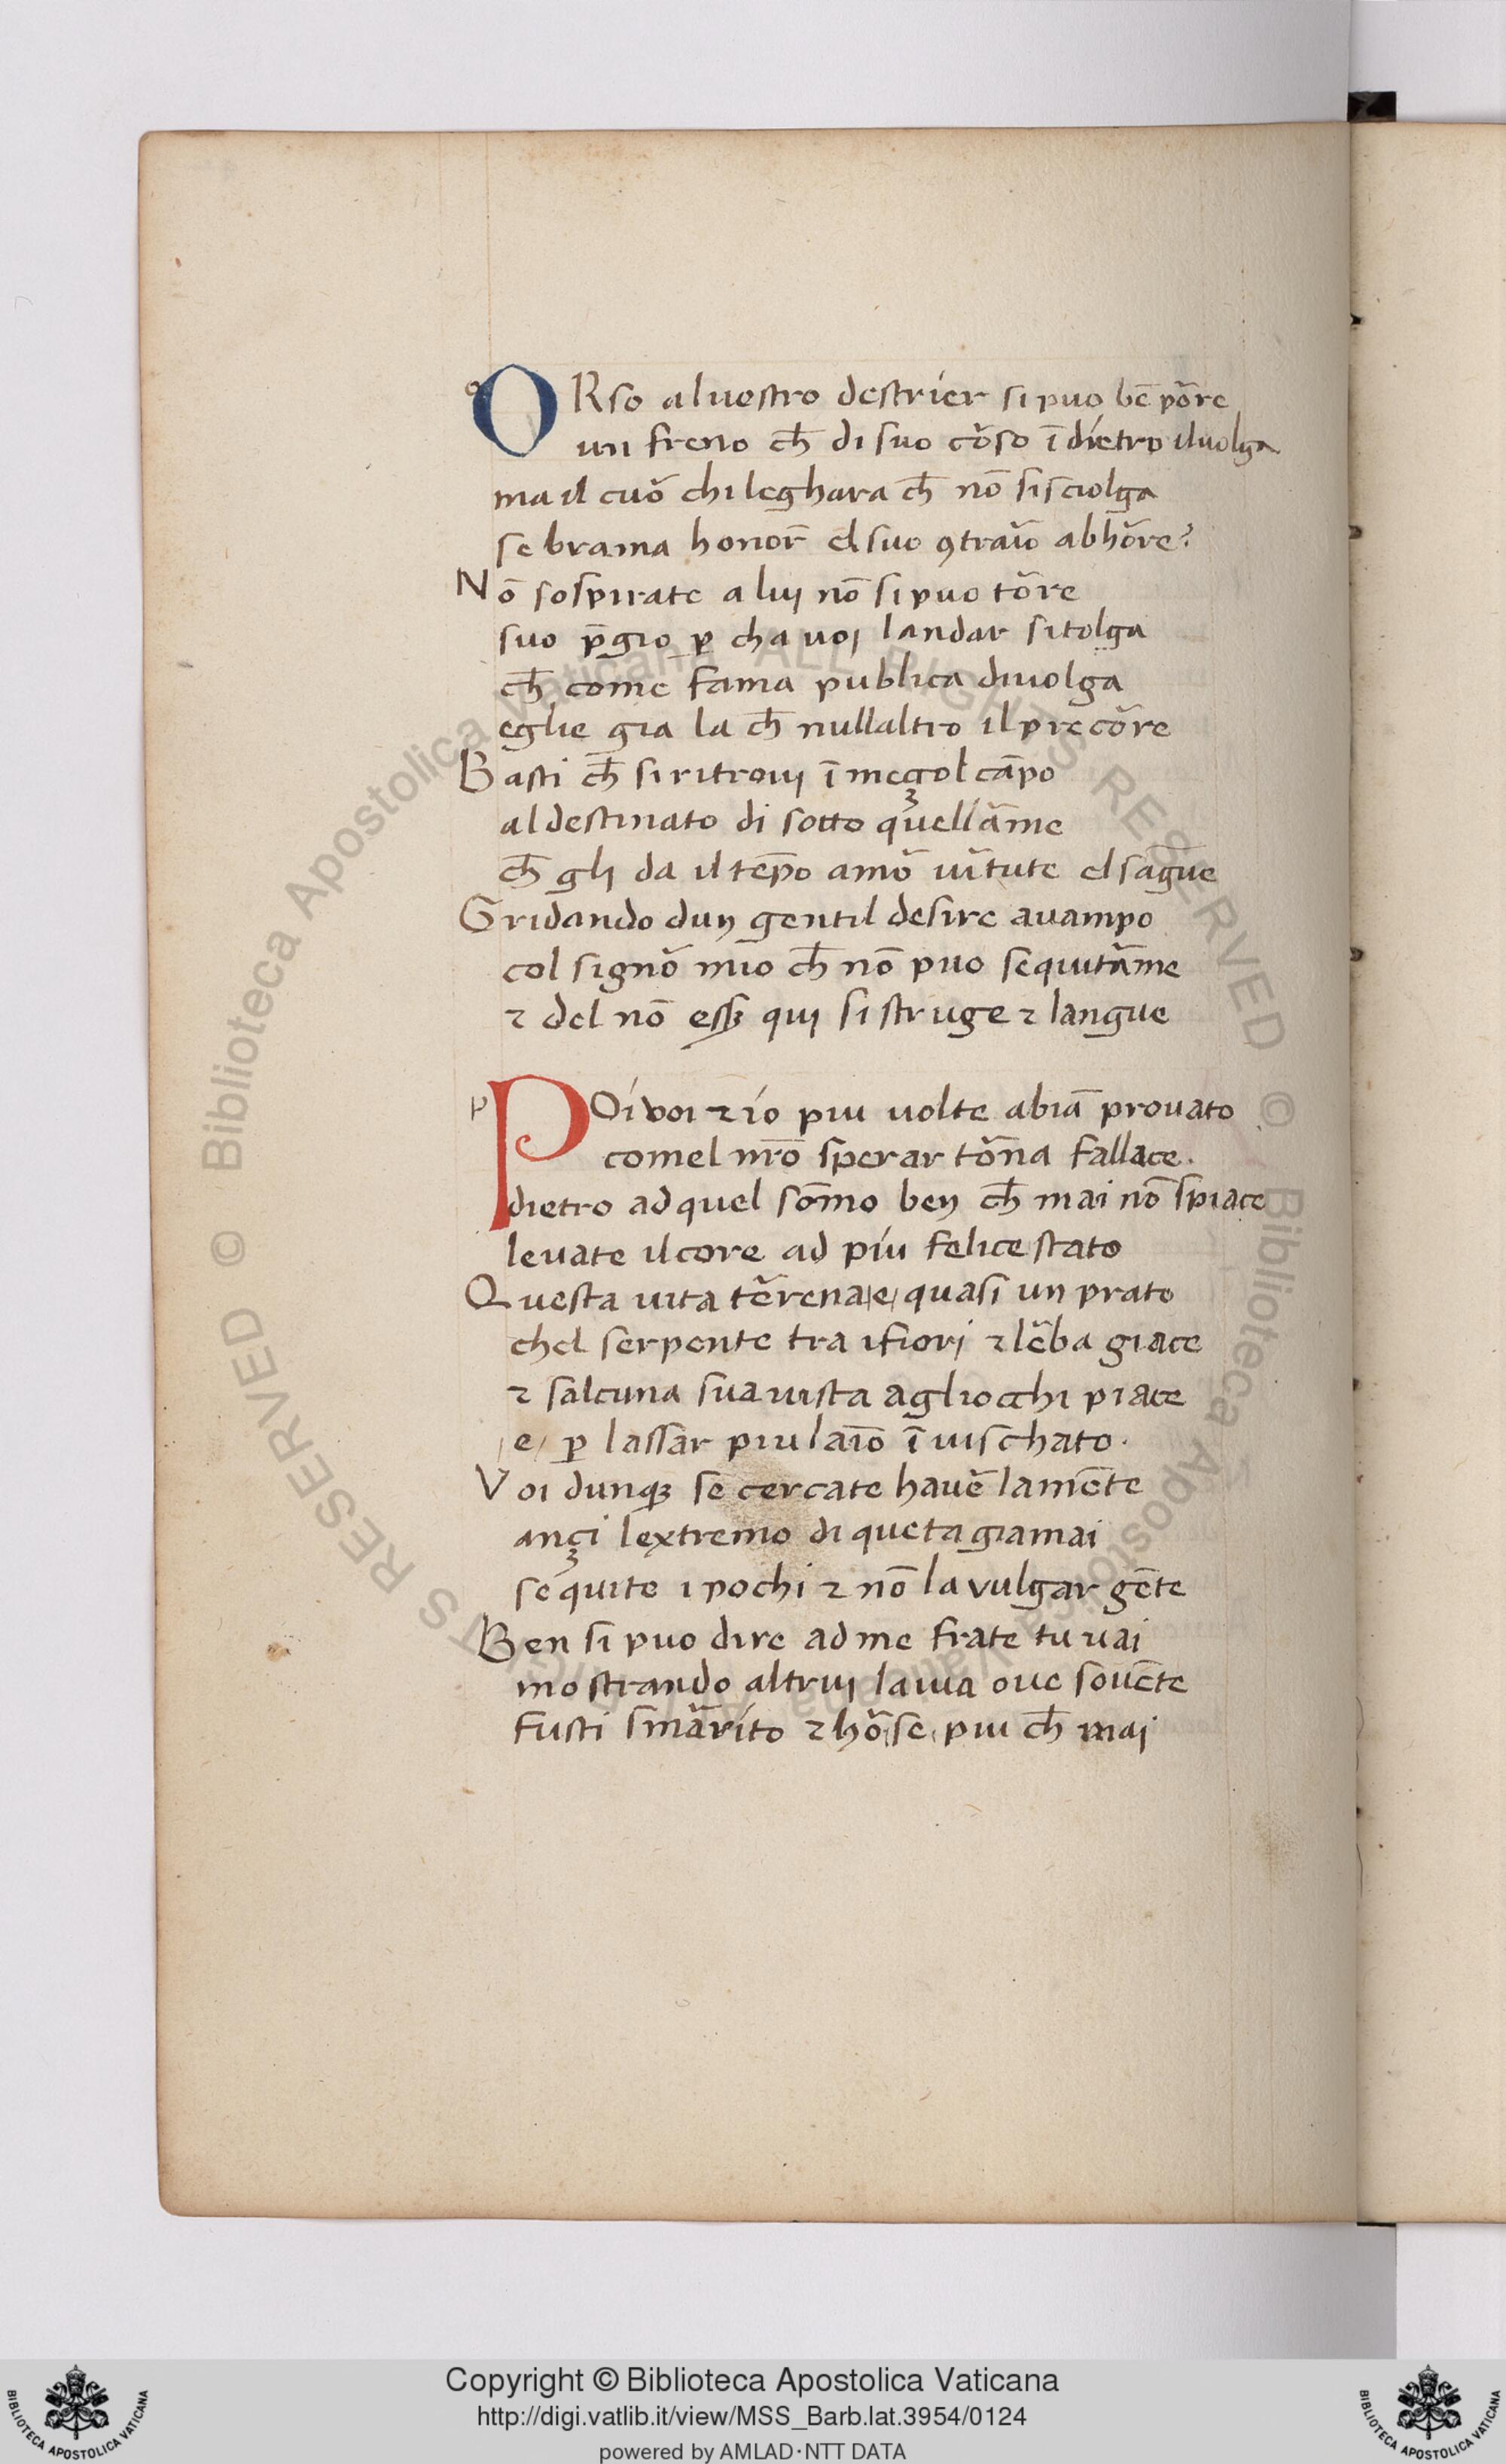 ORso aluestro destrier si puo bē põre
un freno ch̄ di suo cõso ī dietro iluolga
ma il cuõ chi leghara ch̄ nō si sciolga
se brama honor̄ el suo ꝯtraĩo abhõre?
Nō sospirate a luj nō si puo tõre
suo p̄gio ꝑ cha uoj landar si tolga
ch̄ come fama publica diuolga
eglie gia la ch̄ nullaltro il precõre
Basti ch̄ si ritrouj ī meçol cāpo
al destinato di sotto quellãme
ch̄ glj da il tēpo amõ uĩtute el sāgue
Gridando dun gentil desire auampo
col signõ mio ch̄ nō puo sequitãme
⁊ del nō eſſꝫ quj si struge ⁊ langue
POi voi ⁊ io piu uolte abiā prouato
comel nr̄o sperar tõna fallace.
dietro ad quel sōmo ben ch̄ mai nō spiace
leuate il core ad piu felice stato
Questa uita tẽrena e quasi un prato
chel serpente tra ifiorj ⁊ lẽba giace
⁊ salcuna sua uista agliocchi piace
e ꝑ lassar piu laīo ī uischato.
Voi dunqꝫ se cercate hauẽ lamēte
ançi lextremo di queta giamai
sequite i pochi ⁊ nō la vulgar gēte
Ben si puo dire ad me frate tu uai
mostrando altruj la uia oue souēte
fusti smãrito ⁊ hõ se piu ch̄ maj
Copyright © Biblioteca Apostolica Vaticana
http://digi.vatlib.it/view/MSS_Barb.lat.3954/0124
powered by AMLAD·NTT DATA